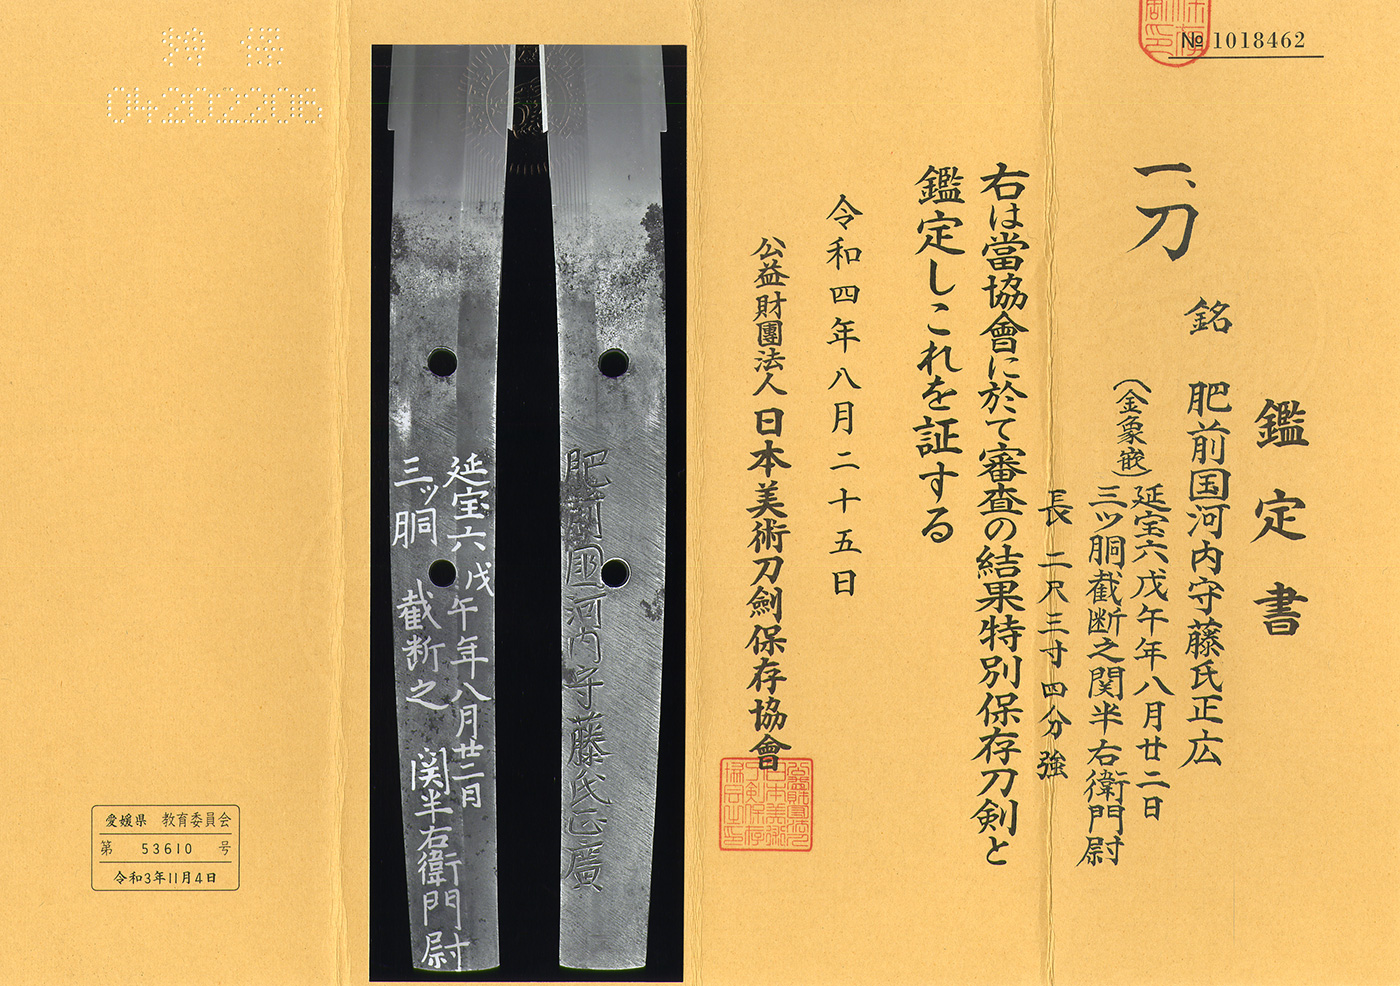 № 1018462
鑑定書
一、刀
銘 肥前国河内守藤氏正広
(金象嵌)延宝六戊午年八月廿二日
三ツ胴截断之関半右衛門尉
長 二尺三寸四分強
右は當協會に於て審査の結果特別保存刀剣と
鑑定しこれを証する
令和四年八月二十五日
公益財團法人日本美術刀劍保存協會
肥前國河内守藤氏正廣
延宝六戊午年八月廿二日
三ツ胴 截断之 関半右衛門尉
04202206
愛媛県 教育委員会
第 53610 号
令和3年11月4日